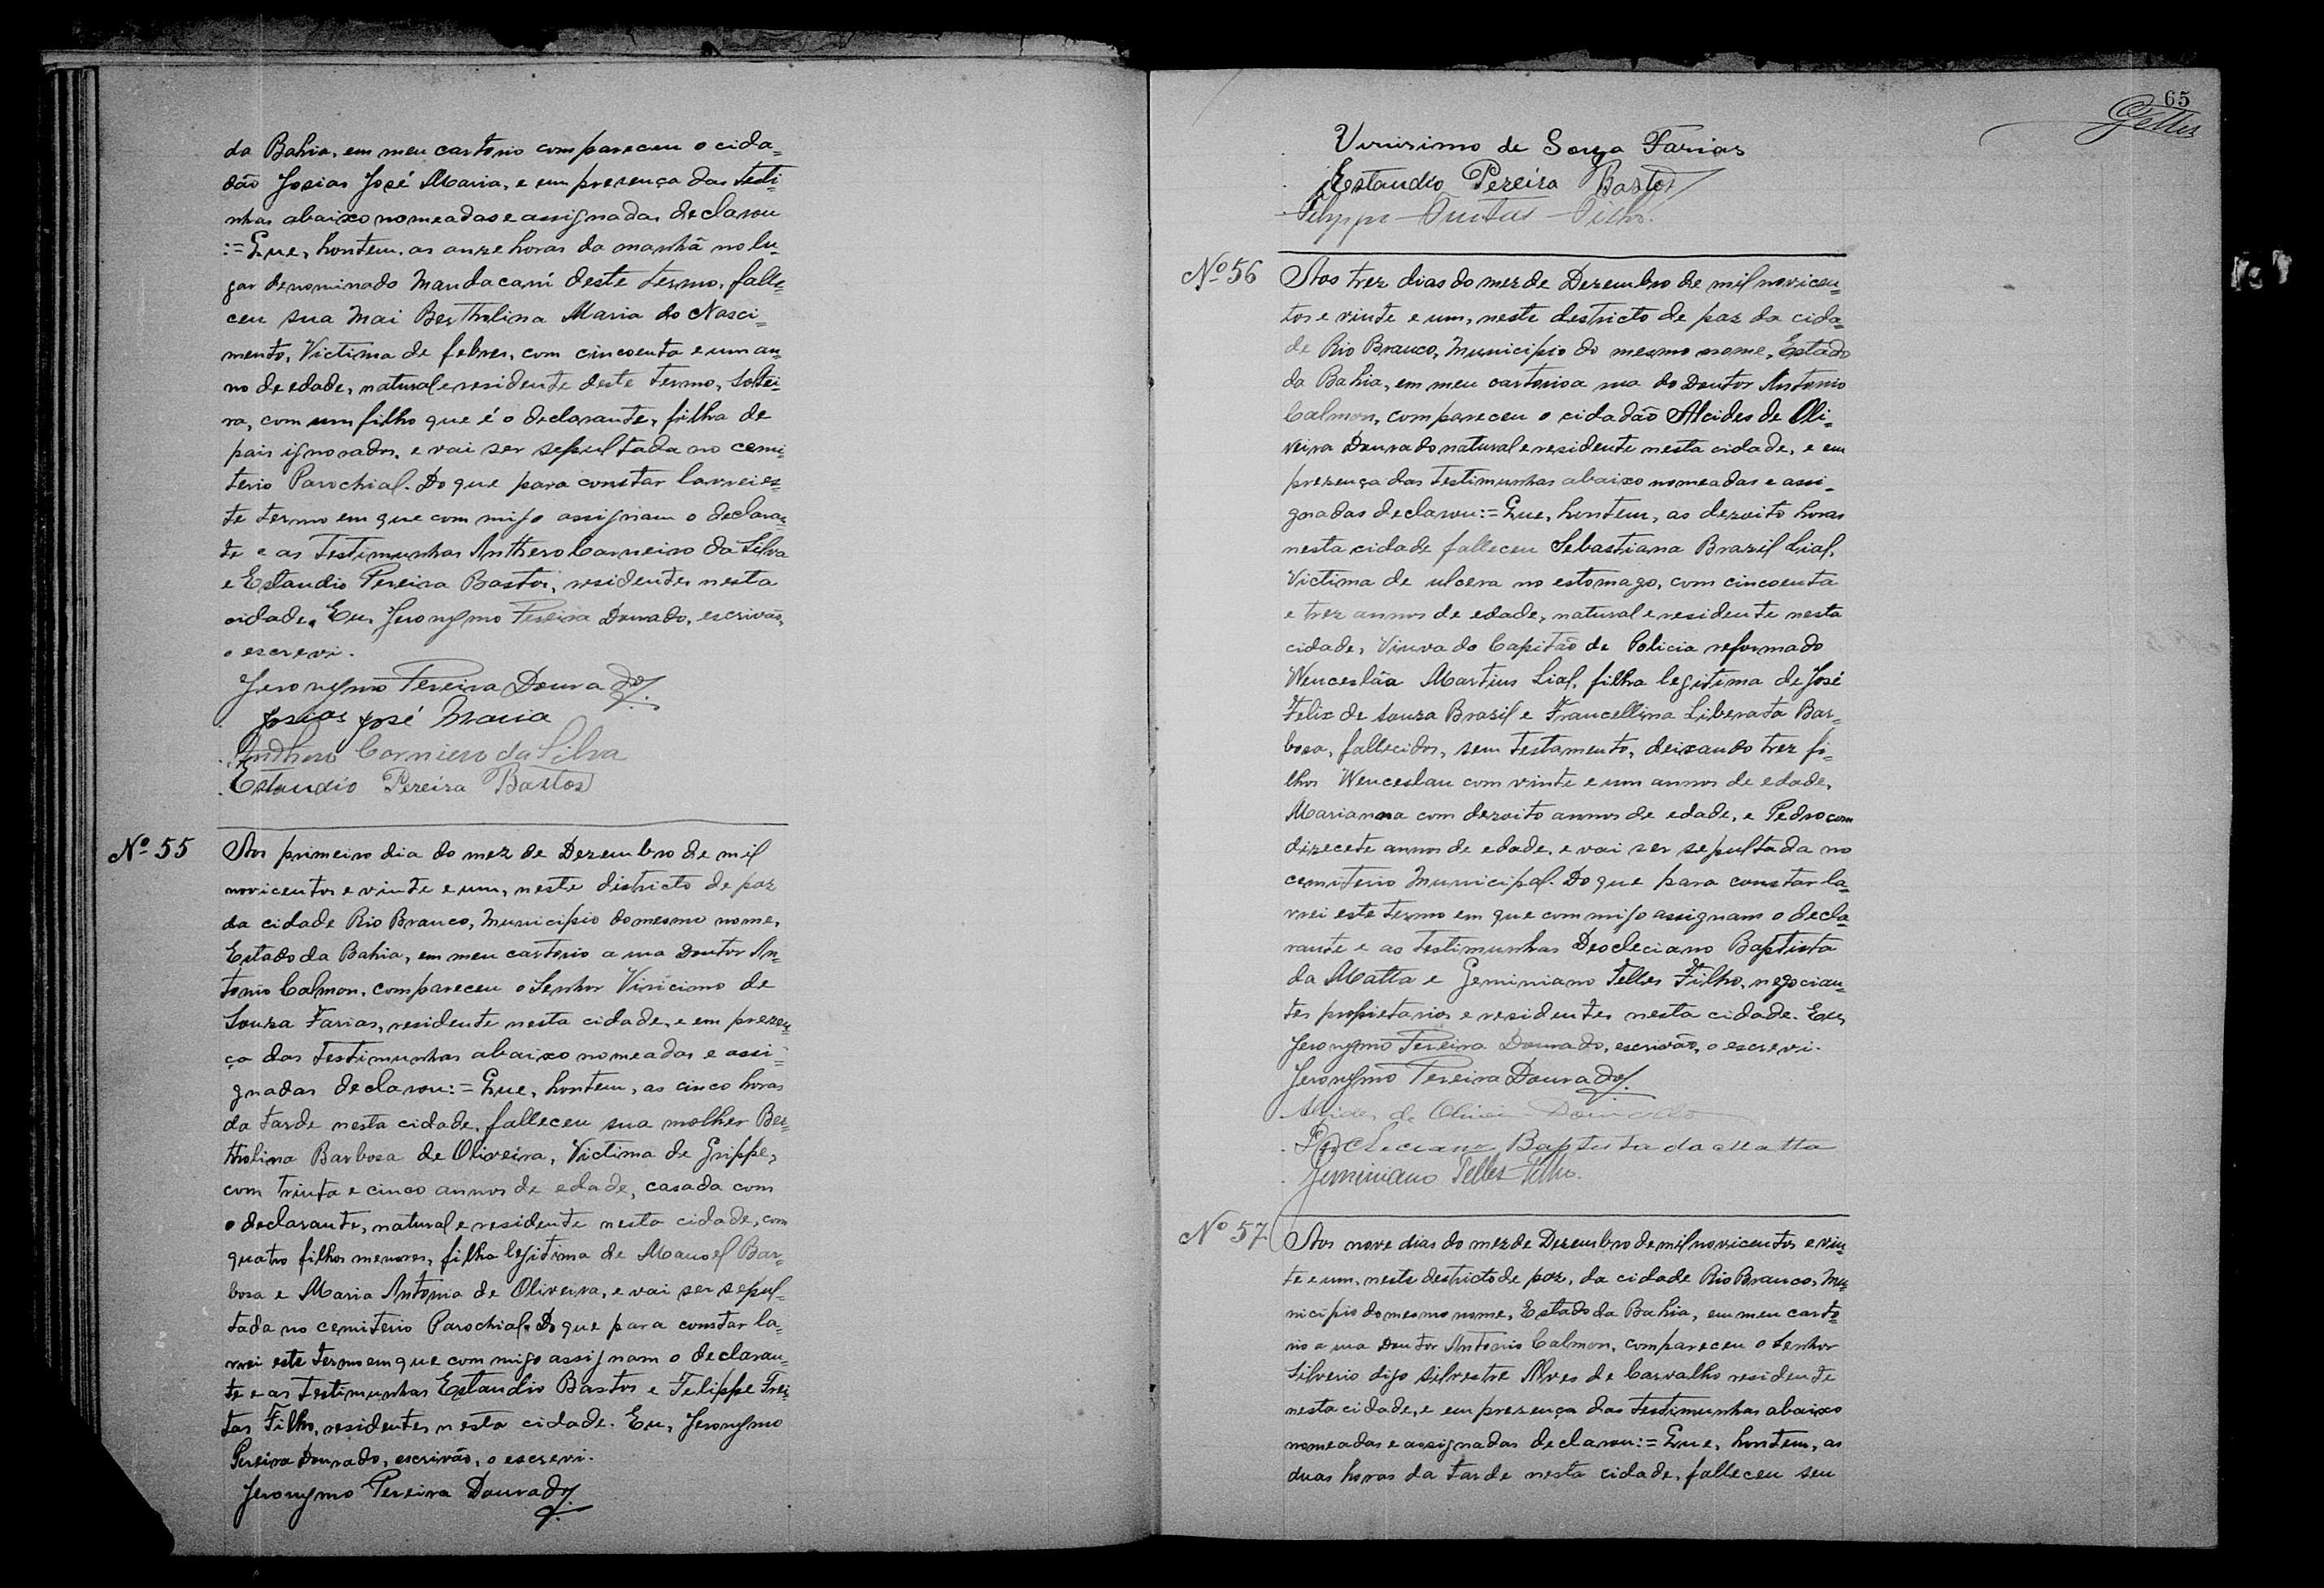 da Bahia, em meu cartorio compareceu o cida=
dão Josias José Maria, e em presença das testi=
nhas abaixo nomeadas e assignadas, declarou
:= Que, hontem, as onze horas da manhã no lu=
gar denominado Mandacarú deste termo, falle=
ceu sua Mai Bertholina Maria do Nasci=
mento, Victima de febres, com cincoenta e um an=
no de edade, natural e residente deste termo, soltei=
ra, com um filho que é o declarante, filha de
pais ignorados, e vai ser sepultada no cemi=
terio Parochial. Do que para constar lavrei es=
te termo em que commigo assignam o declaran=
te e as testimunhas Anthero Carneiro da Silva
e Estaudio Pereira Bastos, residentes nesta
cidade. Eu, Jeronymo Pereira Dourado, escrivão,
o escrevi.
Jeronymo Pereira Dourado
Josias José Maria
Anthero Carneiro da Silva
Estaudio Pereira Bastos
Nº 55
Aos primeiro dia do mez de Dezembro de mil
novicentos e vinte e um, neste districto de paz
da cidade Rio Branco, Municipio do mesmo nome,
Estado da Bahia, em meu cartorio a rua Doutor An=
tonio Calmon, compareceu o Senhor Viricimo de
Souza Farias, residente nesta cidade, e em prezen=
ça das testimunhas abaixo nomeadas e assi=
gnadas declarou: = Que, hontem, as cinco horas
da tarde nesta cidade, falleceu sua molher Ber=
tholina Barbosa de Oliveira, Victima de Grippe,
com trinta e cinco annos de edade, casada com
o declarante, natural e residente nesta cidade, com
quatro filhos menores, filha legitima de Manoel Bar=
bosa e Maria Antonia de Oliveira, e vai ser sepul=
tada no cemiterio Parochial. Do que para constar la=
vrei este termo em que commigo assignam o declaran=
te e as testimunhas Estaudio Bastos e Felippe Frei=
tas Filho, residentes nesta cidade. Eu, Jeronymo
Pereira Dourado, escrivão, o escrevi.
Jeronymo Pereira Dourado
65
Telles
Virissimo de Souza Farias
Estaudio Pereira Bastos
Filho.
Nº 56
Aos trez dias do mez de Dezembro de mil novicen=
tos e vinte e um, neste destricto de paz da cida=
de Rio Branco, Municipio do mesmo nome, Estado
da Bahia, em meu cartorio a rua do Doutor Antonio
Calmon, compareceu o cidadão Alcides de Oli=
veira Dourado natural e residente nesta cidade, e em
prezença das testimunhas abaixo nomeadas e assi=
gnadas declarou: = Que, hontem, as dezoito horas
nesta cidade falleceu Sebastiana Brazil Lial,
Victima de ulcera no estomago, com cincoenta
e trez annos de edade, natural e residente nesta
cidade, Viuva do Capitão de Policia reformado
Wenceslão Martins Lial, filha legitima de José
Felix de Souza Brasil e Francellina Liberata Bar=
bosa, fallecidos, sem testamento, deixando trez fi=
lhos Wenceslau com vinte e um annos de edade,
Marianna com dezoito annos de edade, e Pedro com
dizecete annos de edade, e vai ser sepultada no
cemiterio Municipal. Do que para constar la=
vrei este termo em que commigo assignam o decla=
rante e as testimunhas Deocleciano Baptista
da Matta e Geminiano Telles Filho, negocian=
tes propietarios e residentes nesta cidade. Eu,
Jeronymo Pereira Dourado, escrivão, o escrevi.
Jeronymo Pereira Dourado
Alcides de Oliveira Dourado
Deocleciano Baptista da Matta
Geminiano Telles Filho.
Nº 57
Aos nove dias do mez de Dezembro de mil novicentos e vin=
te e um, neste destricto de paz, da cidade Rio Branco, Mu=
nicipio do mesmo nome, Estado da Bahia, em meu carto=
rio a rua Doutor Antonio Calmon, compareceu o Senhor
Silverio digo Silvestre Alves de Carvalho residente
nesta cidade, e em presença das testimunhas abaixo
nomeadas e assignadas declarou: = Que, hontem, as
duas horas da tarde nesta cidade, falleceu seu